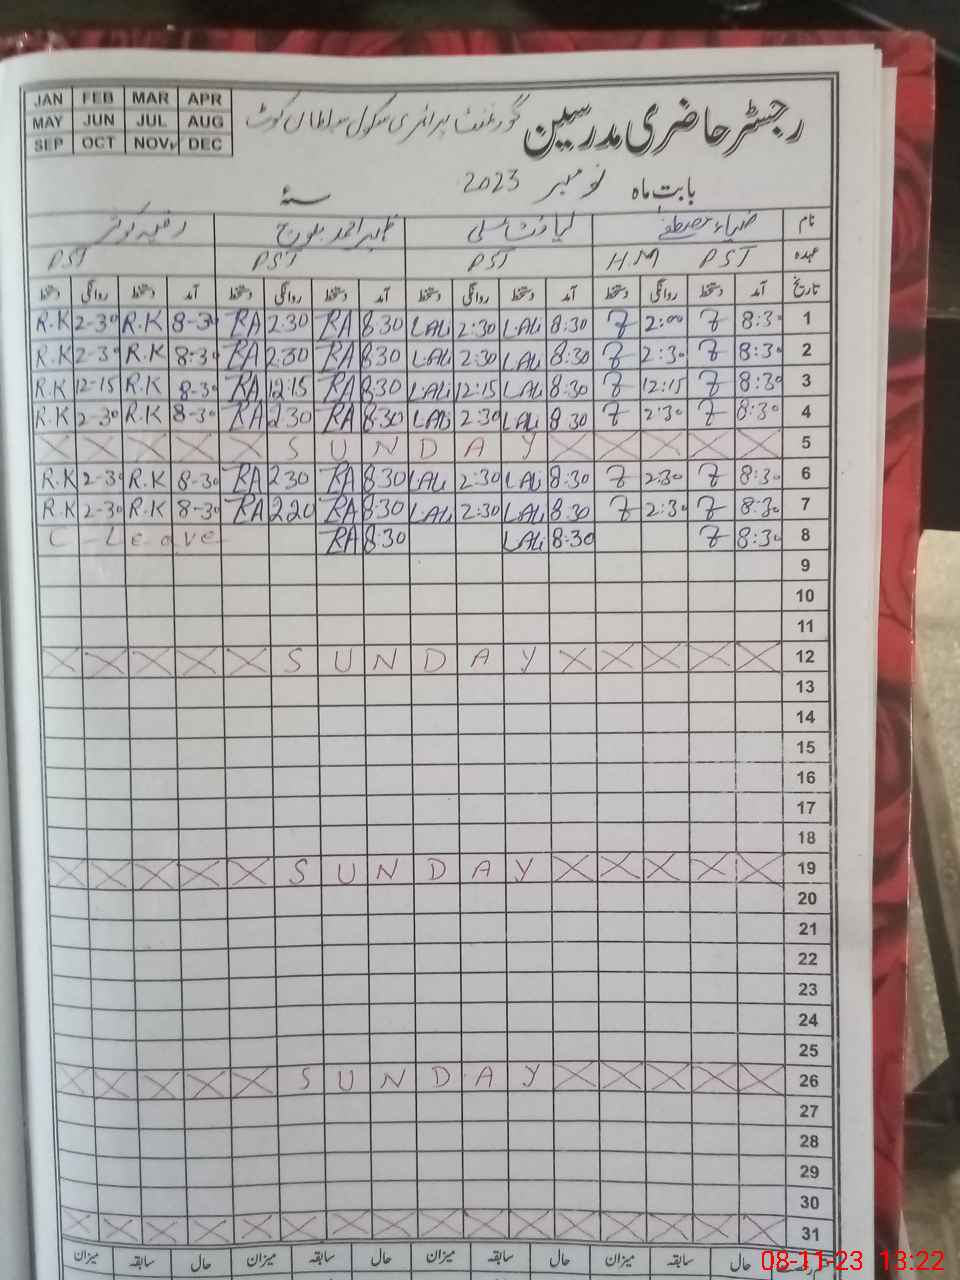 JAN FEB MAR APR
MAY JUN JUL AUG
SEP OCT NOV DEC
رجسٹر حاضری مدرسین گورنمنٹ پرائمری سکول
بابت ماہ نومبر 2023 سنہ
نام ضیاء مصطفیٰ لیاقت علی ظہیر احمد بلوچ رضیہ کوثر
عہدہ PST HM PST PST PST
تاریخ آمد دستخط روانگی دستخط آمد دستخط روانگی دستخط آمد دستخط روانگی دستخط آمد دستخط روانگی دستخط
R.K 2-30 R.K 8-30 RA 2:30 RA 8:30 L.ALi 2:30 L.ALi 8:30 Z 2:00 Z 8:30 1
R.K 2-30 R.K 8-30 RA 2:30 RA 8:30 L.ALi 2:30 L.ALi 8:30 Z 2:30 Z 8:30 2
R.K 12-15 R.K 8-30 RA 12:15 RA 8:30 L.ALi 12:15 L.ALi 8:30 Z 12:15 Z 8:30 3
R.K 2-30 R.K 8-30 RA 2:30 RA 8:30 L.ALi 2:30 L.ALi 8:30 Z 2:30 Z 8:30 4
X X X X X S U N D A Y X X X X X 5
R.K 2-30 R.K 8-30 RA 2:30 RA 8:30 L.ALi 2:30 L.ALi 8:30 Z 2:30 Z 8:30 6
R.K 2-30 R.K 8-30 RA 220 RA 8:30 L.ALi 2:30 L.ALi 8:30 Z 2:30 Z 8:30 7
C - Leave RA 8:30 L.ALi 8:30 Z 8:30 8
9
10
11
X X X X X S U N D A Y X X X X X 12
13
14
15
16
17
18
X X X X X S U N D A Y X X X X X 19
20
21
22
23
24
25
X X X X X S U N D A Y X X X X X 26
27
28
29
30
X X X X X X X X X X X X X X X X 31
حال سابقہ میزان حال سابقہ میزان حال سابقہ میزان حال سابقہ میزان
08-11-23 13:22